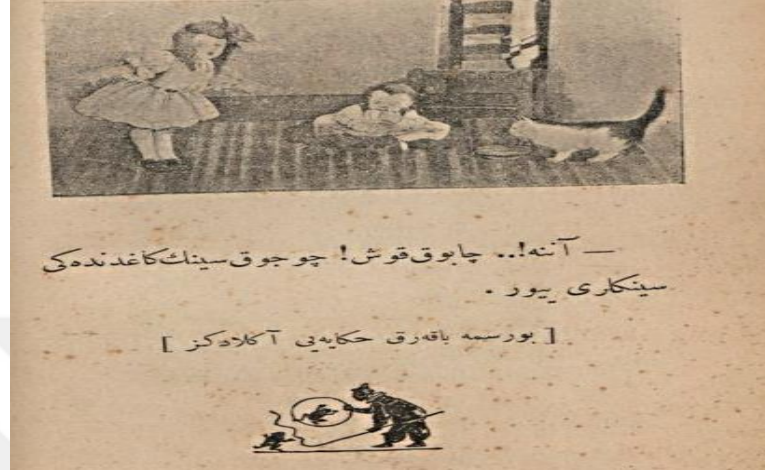 — آننه!.. چابوق قوش! چوجوق سینك كاغدنده‌كی
سینكلری ییور .
[ بو رسمه باقه‌رق حكایه‌یی آكلادكز ]